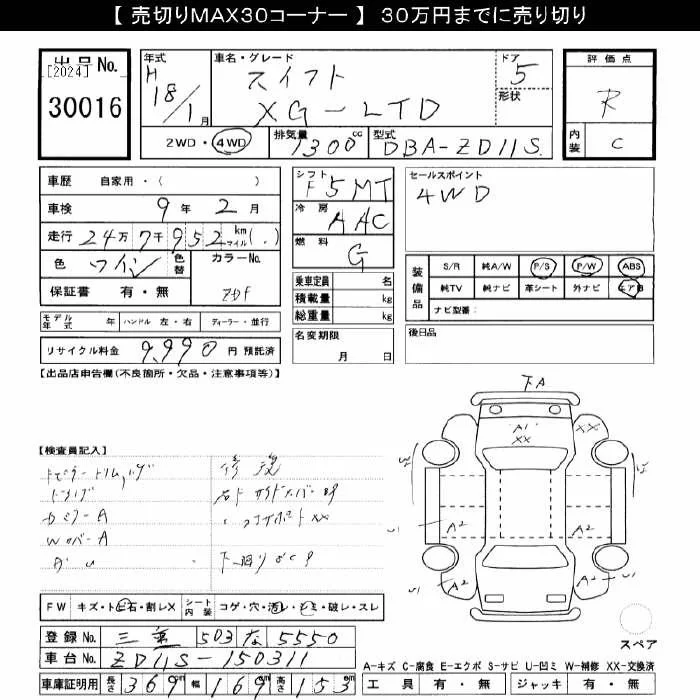 【 売切りMAX30コーナー 】 30万円までに売り切り
出品 No.
[2024]
30016
年式
H 18/1月
車名・グレード
スイフト
XG-LTD
ドア
5
形状
評価点
R
内装
C
2WD・4WD
排気量
1300cc
型式
DBA-ZD11S.
車歴 自家用・( )
車検 9年 2月
走行 24万 7千 952 km マイル ( . )
色 ワイン 色替 カラーNo.
保証書 有・無 ZDF
シフト F5MT
冷房 AAC
燃料 G
乗車定員 名
積載量 kg
総重量 kg
名変期限
月 日
セールスポイント
4WD
装備品
S/R 純A/W P/S P/W ABS
純TV 純ナビ 革シート 外ナビ エアB
ナビ型番:
後日品
モデル年式 年 ハンドル 左・右 ディーラー・並行
リサイクル料金 9,990 円 預託済
【出品店申告欄(不良箇所・欠品・注意事項等)】
下A
A1
XX
XX
A2
A2
A2
A2
【検査員記入】
修復
カミラーA
WカバーA
下廻りさび
FW キズ・トビ石・割レX シート内装 コゲ・穴・汚レ・シミ・破レ・スレ
登録 No. 三重 503 な 5550
車台 No. ZD11S-150311
車庫証明用 長さ 369cm 幅 169cm 高さ 153cm
スペア
A-キズ C-腐食 E-エクボ S-サビ U-凹ミ W-補修 XX-交換済
工具 有・無 ジャッキ 有・無